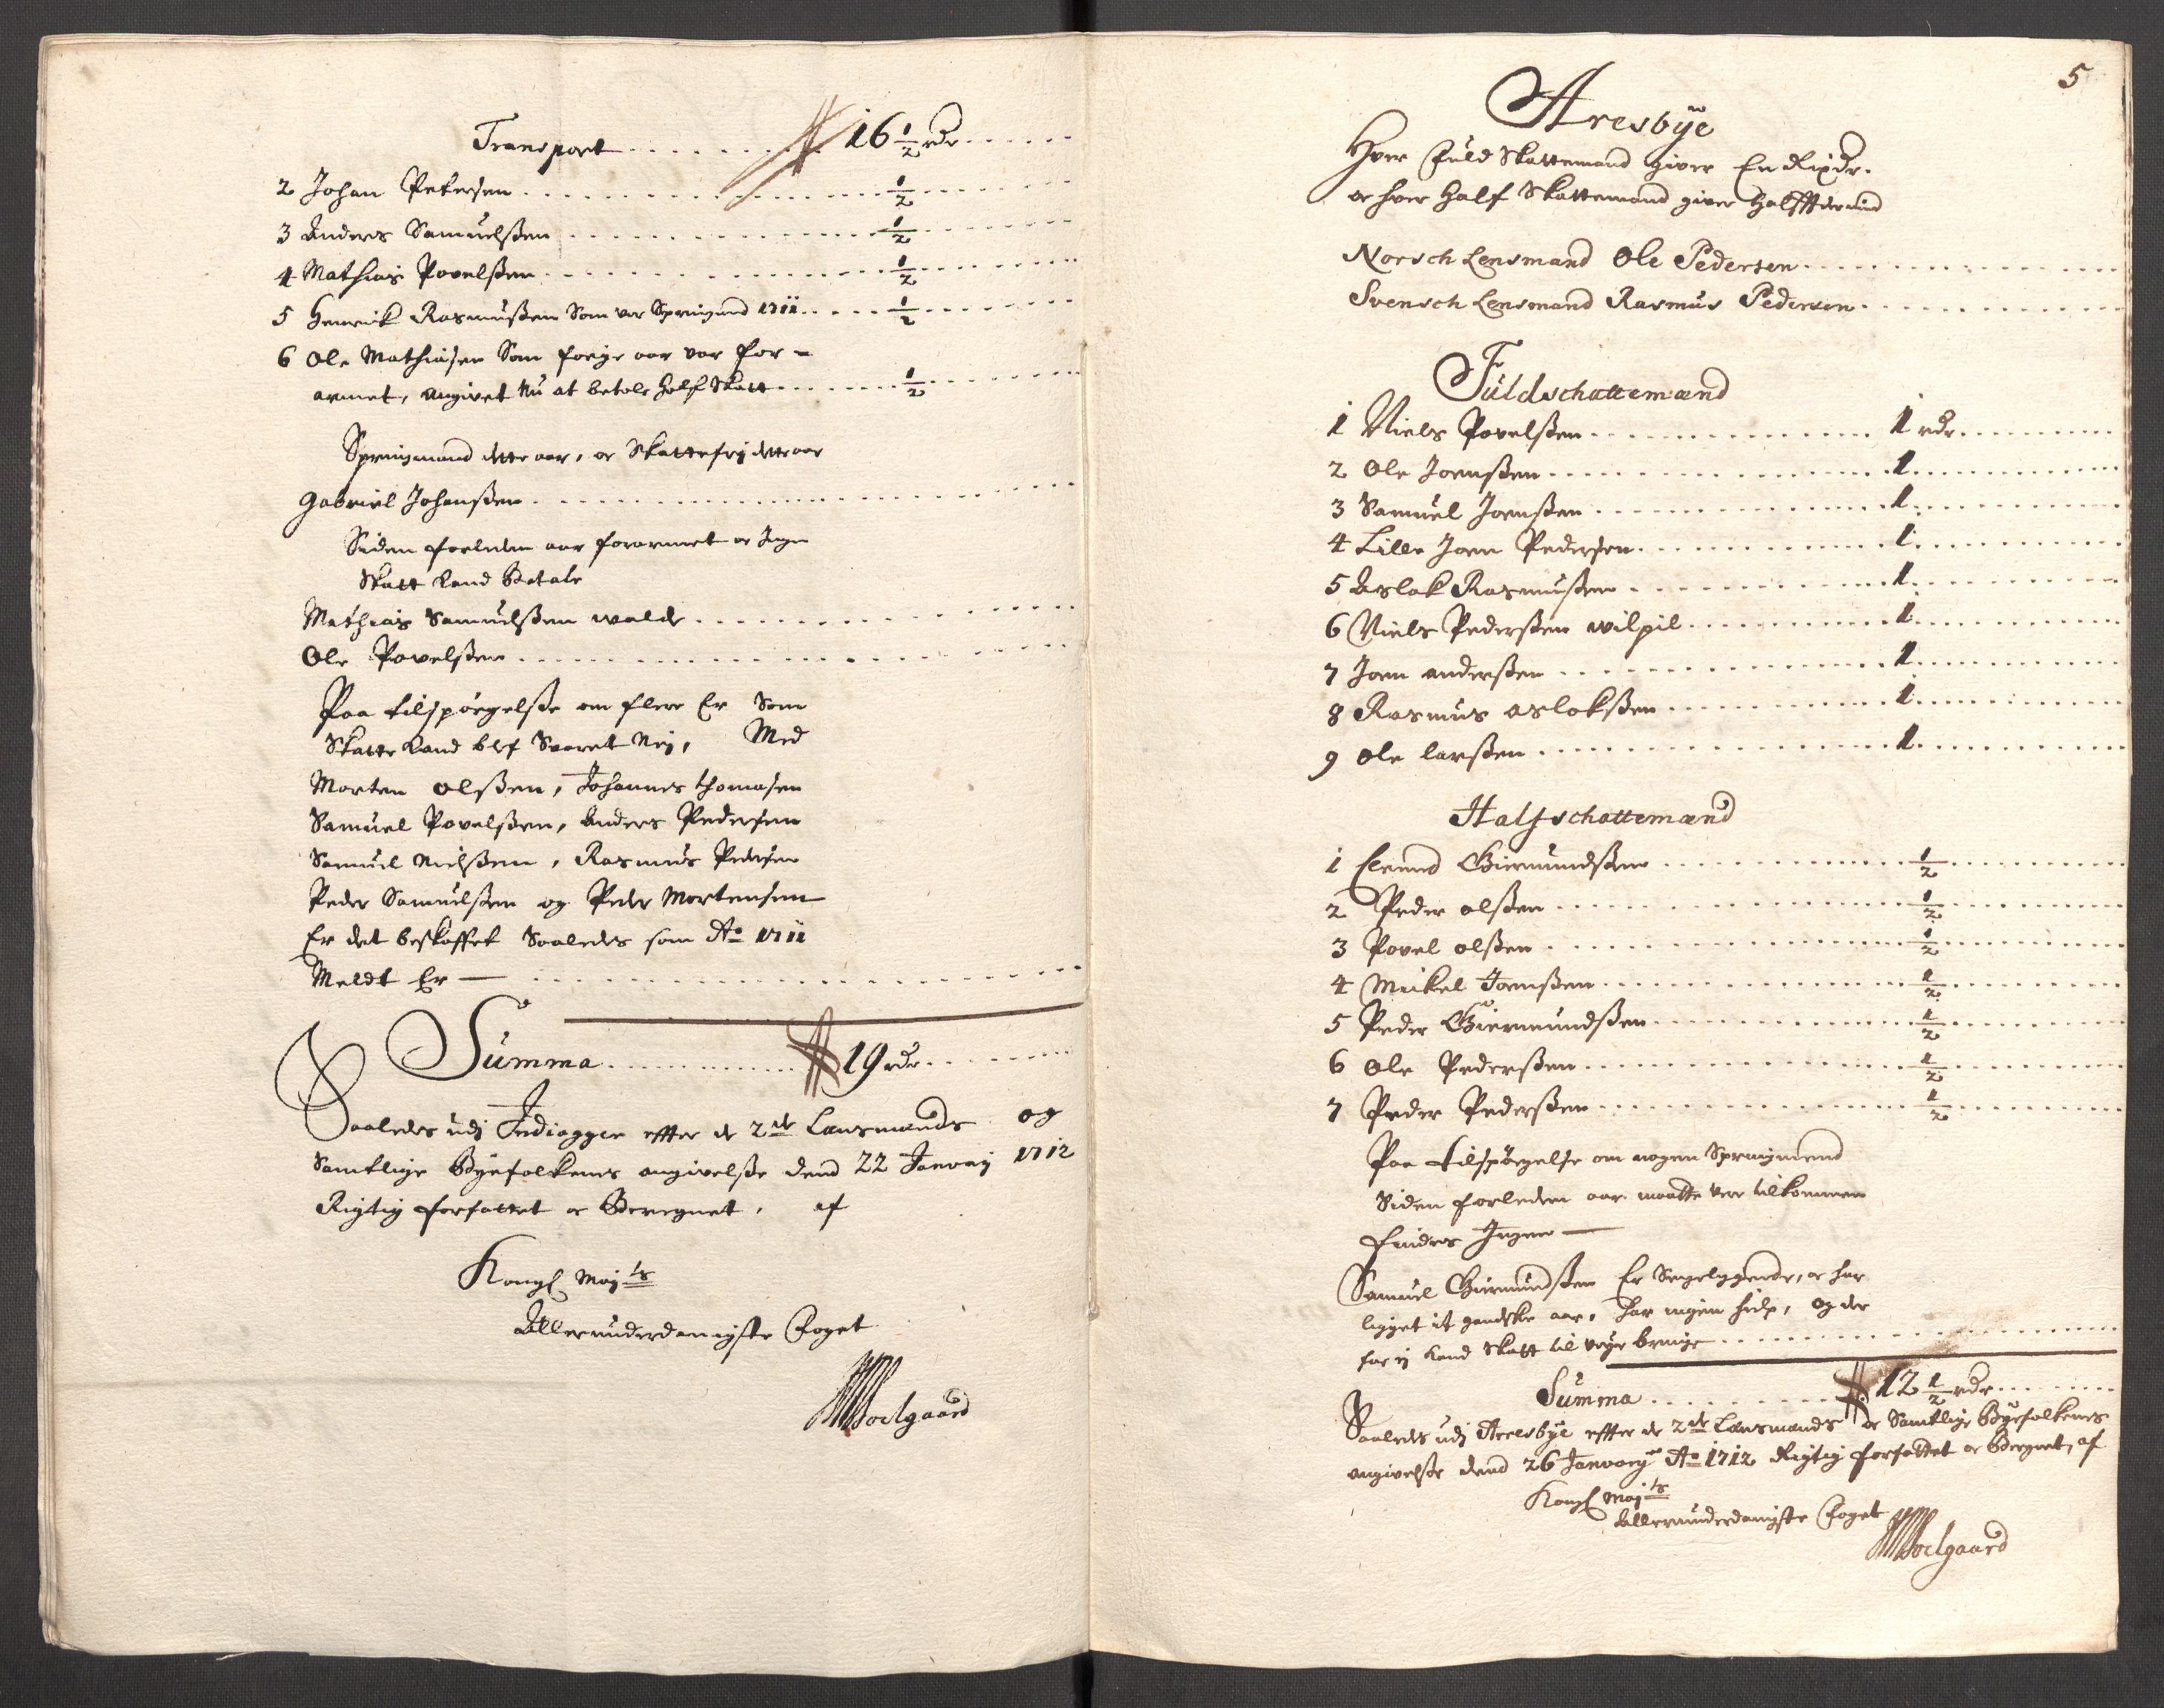 Transport . . . . . . . . 16 1/2 rdr . . . .
2 Johan Petersen . . . . . . . . 1/2 . . . .
3 Anders Samuelsßen . . . . . . . . 1/2 . . . .
4 Mathias Povelsßen . . . . . . . . 1/2 . . . .
5 Henrick Rasmusßen Som var Springmd 1711 . . . . 1/2 . . . .
6 Ole Mathiasen Som forige aar var for=
armet, angivet Nu at betale half Skatt . . . . 1/2 . . . .
Springmand dette aar, er Skattefrj dette aar
Gabriel Johansßen . . . . . . . .
Siden forleden aar forarmet er Ingen
Skatt Kand Betale
Mathias Samuelsßen walde . . . . . . . .
Ole Povelsßen . . . . . . . .
Paa tilspørgelße om flere Er Som
Skatte Kand blef Svaret Nej, Med
Morten olsßen, Johannes thomasen
Samuel Povelsßen, Anders Pedersen
Samuel Nielsßen, Rasmus Pedersen
Peder Samuelsßen og Peder Mortensen
Er det beskaffet Saaledes som Ao 1711
Meldt Er — . . . . . . . .
Summa . . . . . . . . 19 rdr . . . .
Saaledes udj Indiagger effter de 2de Lænsmænds og
Samtlige Byefolkenes angivelße dend 22 Janvarj 1712
Rigtig forfattet er Beregnet, af
Kongl Mayts
Allerunderdanigste Foget
Soelgaard
5
Aresbÿe
Hver Fuld Skattemand giver En Rixdr.
er hver Half Skattemand giver halff derimod
Norsch Lensmand Ole Pedersen . . . . . . . .
Svensch Lensmand Rasmus Pedersen . . . . . . . .
Fuldschattemænd
1 Niels Povelsßen . . . . . . . . 1 rdr . . . .
2 Ole Joensßen . . . . . . . . 1 . . . .
3 Samuel Joensßen . . . . . . . . 1 . . . .
4 Lille Joen Pedersen . . . . . . . . 1 . . . .
5 Aslak Rasmusßen . . . . . . . . 1 . . . .
6 Niels Pedersßen wilpil . . . . . . . . 1 . . . .
7 Joen andersßen . . . . . . . . 1 . . . .
8 Rasmus aslaksßen . . . . . . . . 1 . . . .
9 Ole larsßen . . . . . . . . 1 . . . .
Halfschattemænd
1 Evend Giermundsßen . . . . . . . . 1/2 . . . .
2 Peder olsßen . . . . . . . . 1/2 . . . .
3 Povel olsßen . . . . . . . . 1/2 . . . .
4 Mickel Joensßen . . . . . . . . 1/2 . . . .
5 Peder Giermundsßen . . . . . . . . 1/2 . . . .
6 Ole Pedersßen . . . . . . . . 1/2 . . . .
7 Peder Pedersßen . . . . . . . . 1/2 . . . .
Paa tilspørgelse om nogen Springmend
Siden forleden aar maatte vere tilkommen
findes Ingen —
Samuel Giermundsßen Er Sengeliggende, er har
ligget it gandske aar, har ingen hielp, og der
for ej Kand Skatt til veye bringe . . . . . . . .
Summa . . . . . . . . 12 1/2 rdr . . . .
Saaledes udj Aresbÿe effter de 2de Lænsmænds er Samtlige Byefolkenes
angivelße dend 26 Janvarj Ao 1712 Rigtig forfattet er Beregnet, af
Kongl Mayts
Allerunderdanigste Foget
Soelgaard